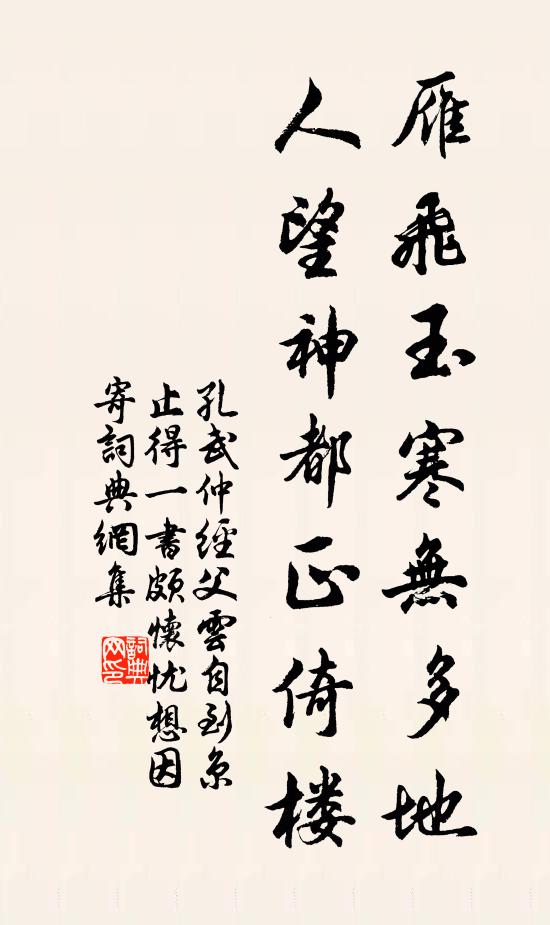 雁飛玉寒無多地
人望神都正倚楼
孔武仲經父雲自到京
止得一書頗懷忧想因
寄詞典網集
詞典
网印